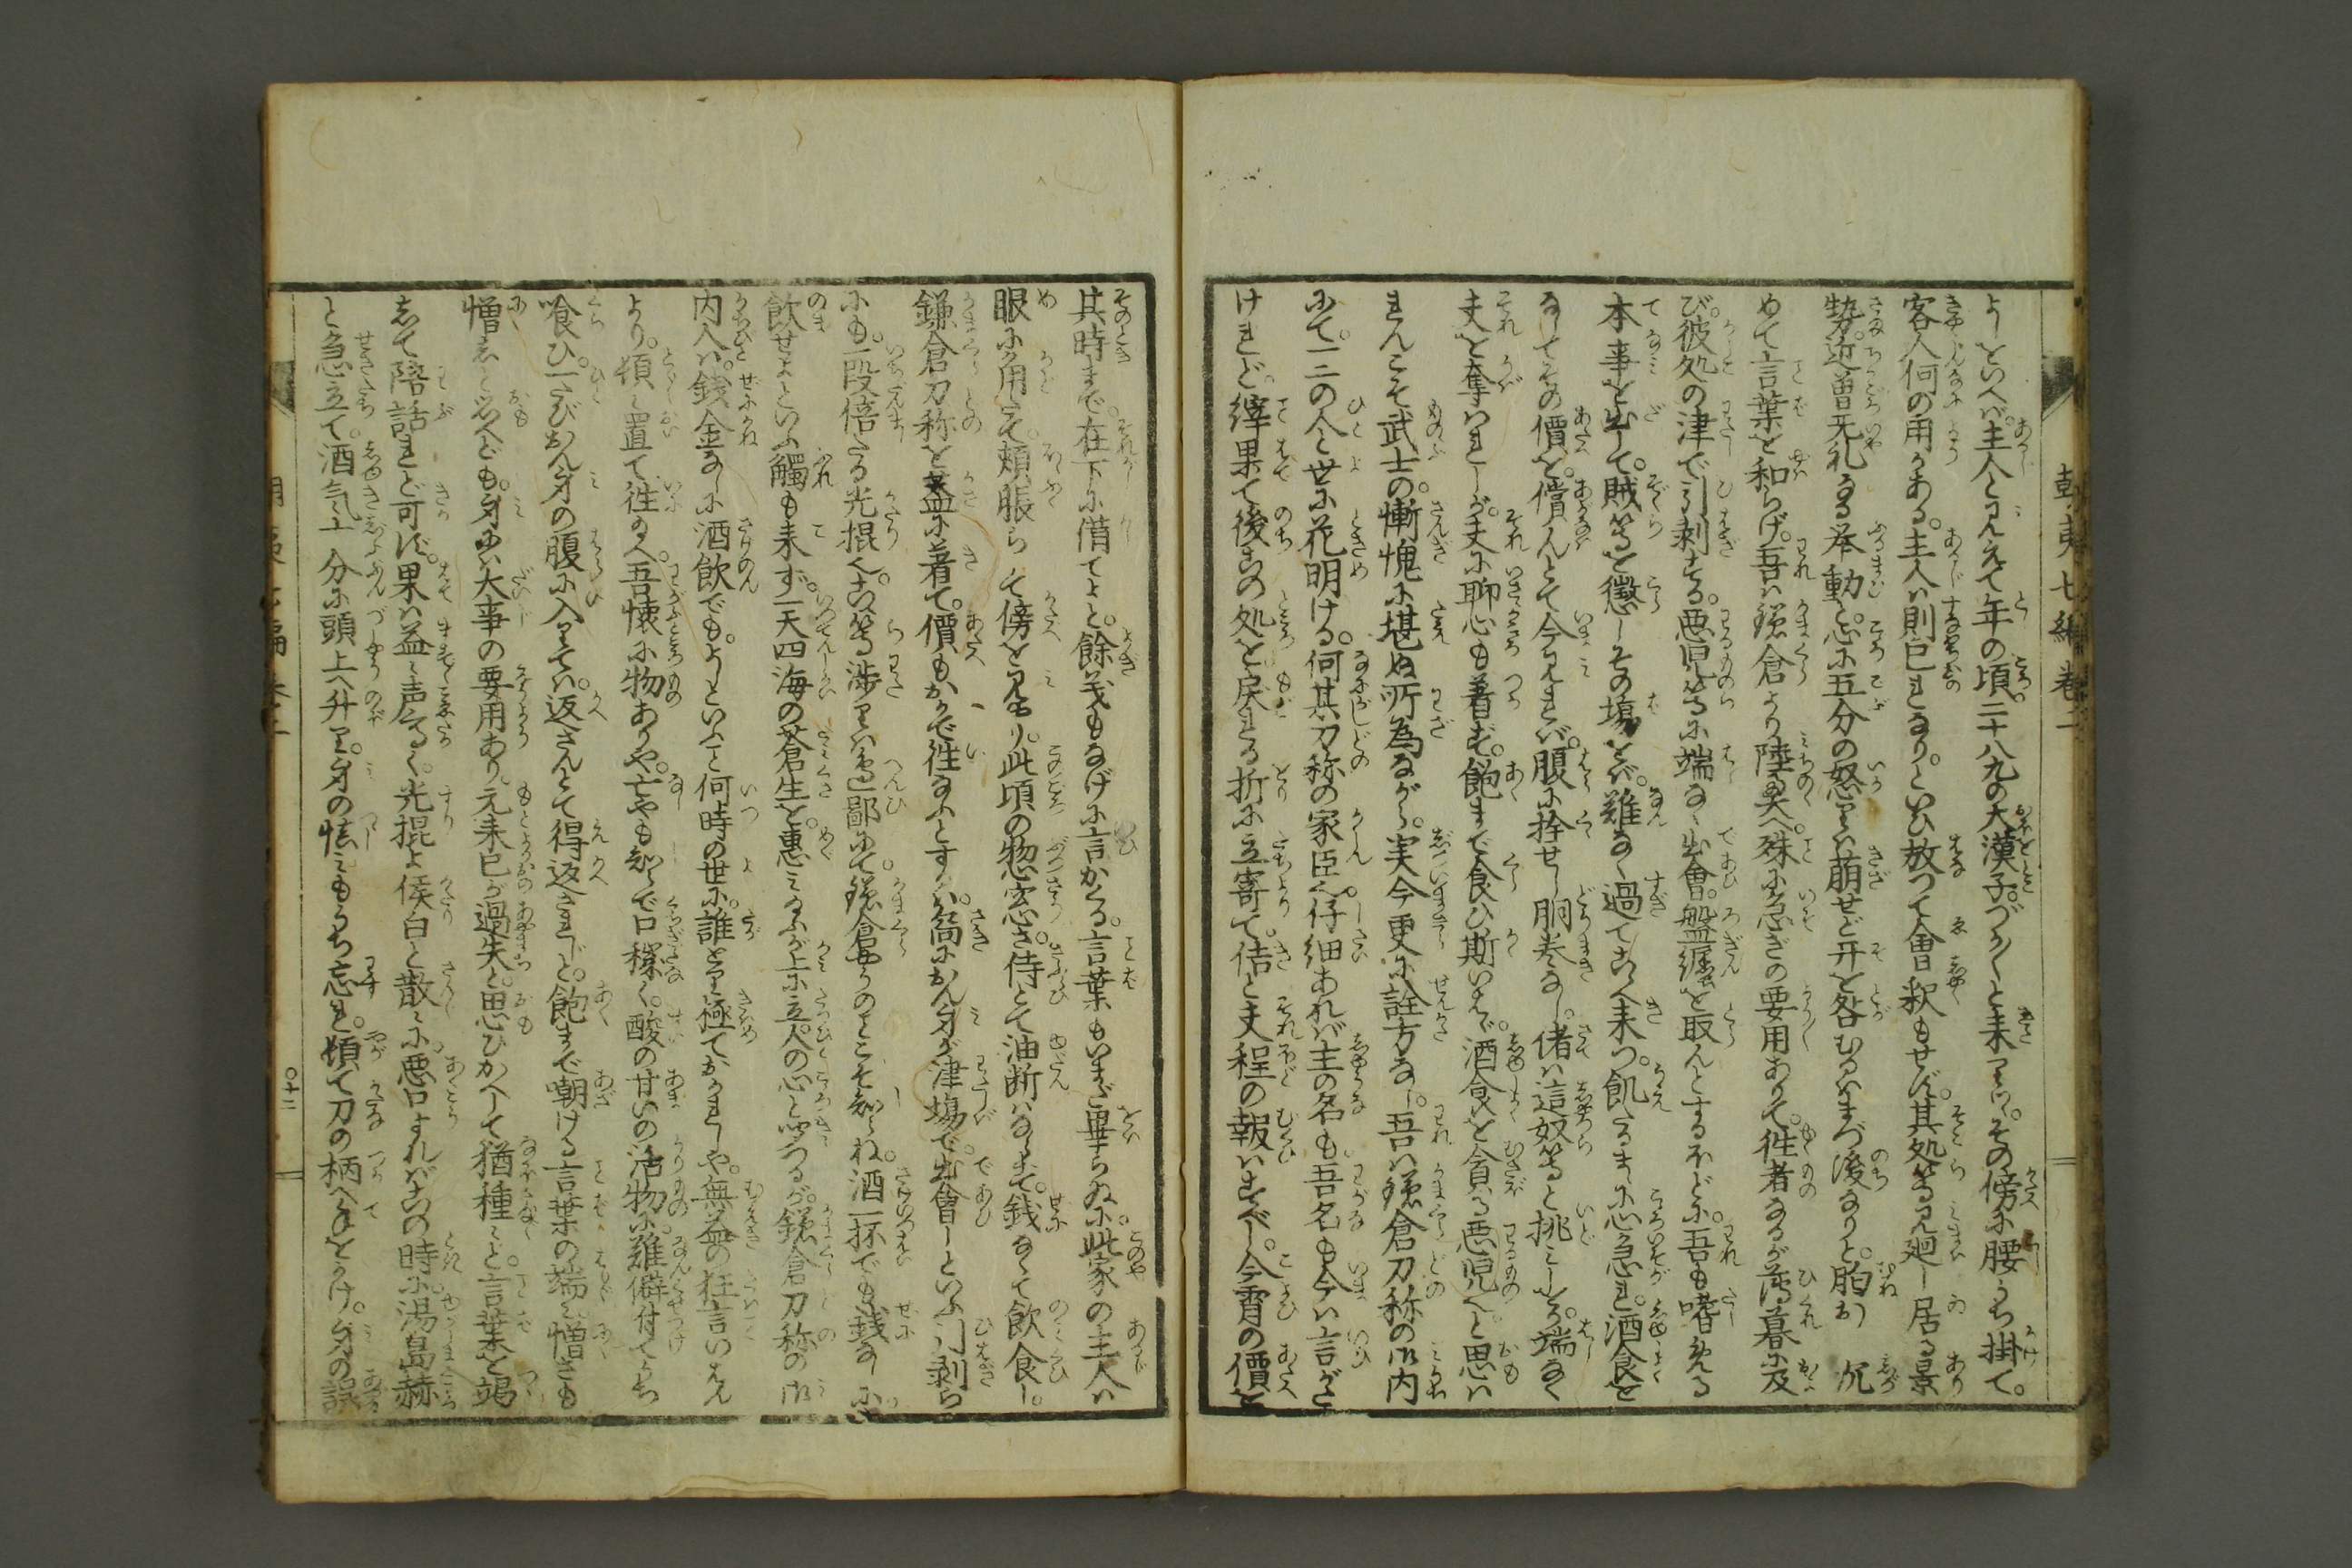 朝夷七編巻二
よ」といへバ。主人と見えて年の頃。二十八九の大漢子。づか〳〵と来りつ。その傍に腰うち掛て。
客人何の用かある。主人ハ則己れなり。といひ放つて会釈もせず。其処等見廻し居る景
勢。近曽無礼なる挙動と。心に五分の怒りハ萌せど。开を咎むるハまづ後なりと。胸お沉
めて言葉を和らげ。吾ハ鎌倉より陸奥へ。殊に急ぎの要用ありて。往者なるが薄暮に及
び。彼処の津で引剥する。悪児等に端なく出會。盤纏を取んとするほどに。吾も嗜める
本事を出して。賊等を懲しその場をバ。難なく過てこゝへ来つ。飢たるまゝに心急れ。酒食を
なしてその價を。償んとて今見れバ。腹に拴せし胴巻なし。偖ハ這奴等と挑みしとき。端なく
夫を奪ハれしが。夫に聊心も着ず。飽まで食ひ斯いへバ。酒食を貪る悪児と。思ハ
れんこそ武士の。慚愧に堪ぬ所為ながら。実今更に詮方なし。吾ハ鎌倉刀称の御内
にて。一二の人と世に花明ける。何某刀称の家臣也。仔細あれバ主の名も。吾名も今ハ言がた
けれど。縡果て後この処を戻れる折に立寄て。佶と夫程の報ハすべし。今宵の價を
其時まで。在下に借てよと。餘義もなげに言かくる。言葉もいまだ畢らぬに。此家の主人ハ
眼に角たて。頬脹らして傍を見やり。此頃の物怱さ。侍とて油断ハならず。銭なくて飲食し。
鎌倉刀称を蓋に着て。價もおかで往なふとするハ。先におん身が津場で。出會しといふ引剥ら
にも。一段倍たる光棍也。こゝ等渉りハ邉鄙にて。鎌倉やうのことこそ知らね。酒一杯でも銭なしに
飲せよといふ觸も来ず。一天四海の蒼生を。惠みたまふが上に立人の心と思つるが。鎌倉刀称の御
内人ハ。銭金なしに酒飲でも。よしといふこと何時の世に。誰とり極ておかれしや。無益の狂言いはん
より。頓く置て往なへ。吾懐に物ありや。亡やも知らで口穢く。酸の甘いの活物に。難僻付てうち
喰ひ。一たびおん身の腹に入りてハ。返さんとて得返されじと。飽まで嘲ける言葉の端々。憎さも
憎しと思へども。身にハ大事の要用あり。元来己が過失と。思ひかへして猶種々と。言葉を竭
して陪話れど可ず。果ハ益々声高く。光棍よ俟白と散々に。悪口すれバこの時に湯島赫
と急立て。酒気十分に頭上へ升り。身の怯みもうち忘れ。頓て刀の柄へ手をかけ。身の誤
〇十二